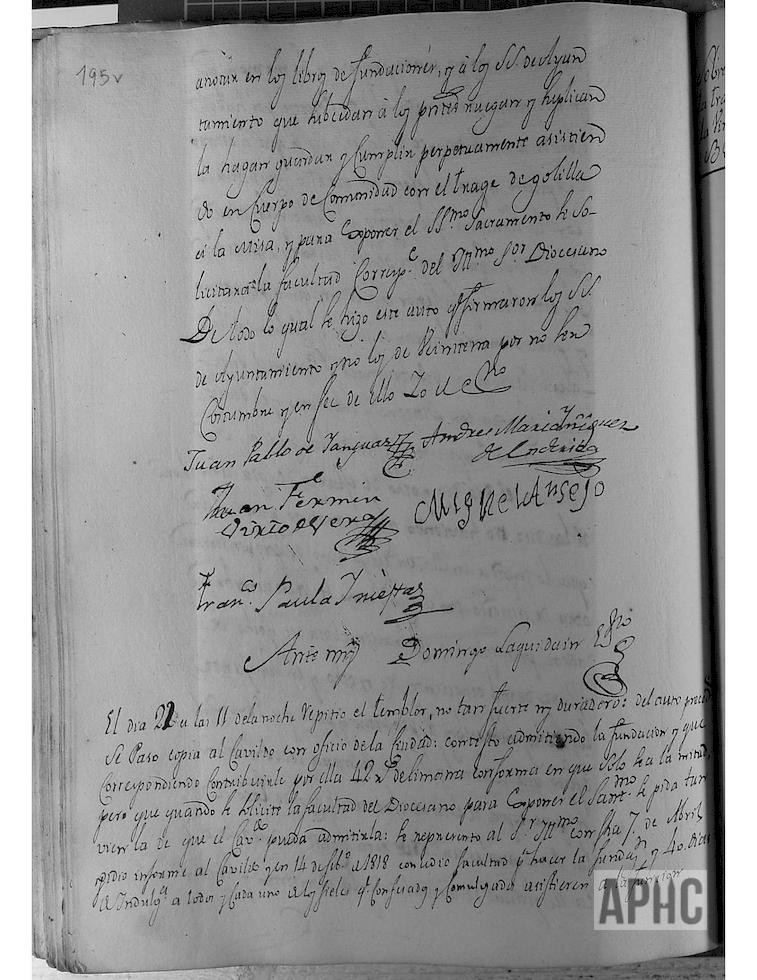 195v
anotar en los libros de fundaciones, y á los SS. de Ayun
tamiento que subcedan á los pntes ruegan y suplican
la hagan guardar y Cumplir perpetuamente asistien
do en Cuerpo de Comunidad con el trage de golilla
á la Misa, y para Exponer el SSmo Sacramento se so-
licitará la facultad Corresp.e del Yllmo Sor Diocesano
De todo lo qual se hizo este auto q firmaron los SS.
de Ayuntamiento y no los de Veintena por no ser
Costumbre y en fee de ello Yo el Sno
Juan Pablo de Yanguas Andres Maria Yñiguez
de
Juan Fermin Miguel Ansejo
Virto de Vera
Fran.co Paula Yniestas
Ante my Domingo Laquidain Esno
El dia 22 a las 11 de la noche repitio el temblor, no tan fuerte ny duradero: del auto preced
Se Paso copia al Cavildo con oficio de la Ciudad: contesto admitiendo la fundacion y que
Correspondiendo Contribuirle por ella 42 r.s de limosna conforma en que solo sea la mitad,
pero que quando se solicite la facultad del Diocesano para Exponer el Sacrmo. se pida tam
vien la de que el Cav.o pueda admitirla: se represento al S.r Yllmo con fha 7. de Abril
pidio informe al Cavildo y en 14 de feb.o de 1818 concedio facultad p.a hacer la fundaon y 40. dias
de Yndulg.a a todos y Cada uno de los fieles q.e Confesados y Comulgados asistieren a la funcion
APHC